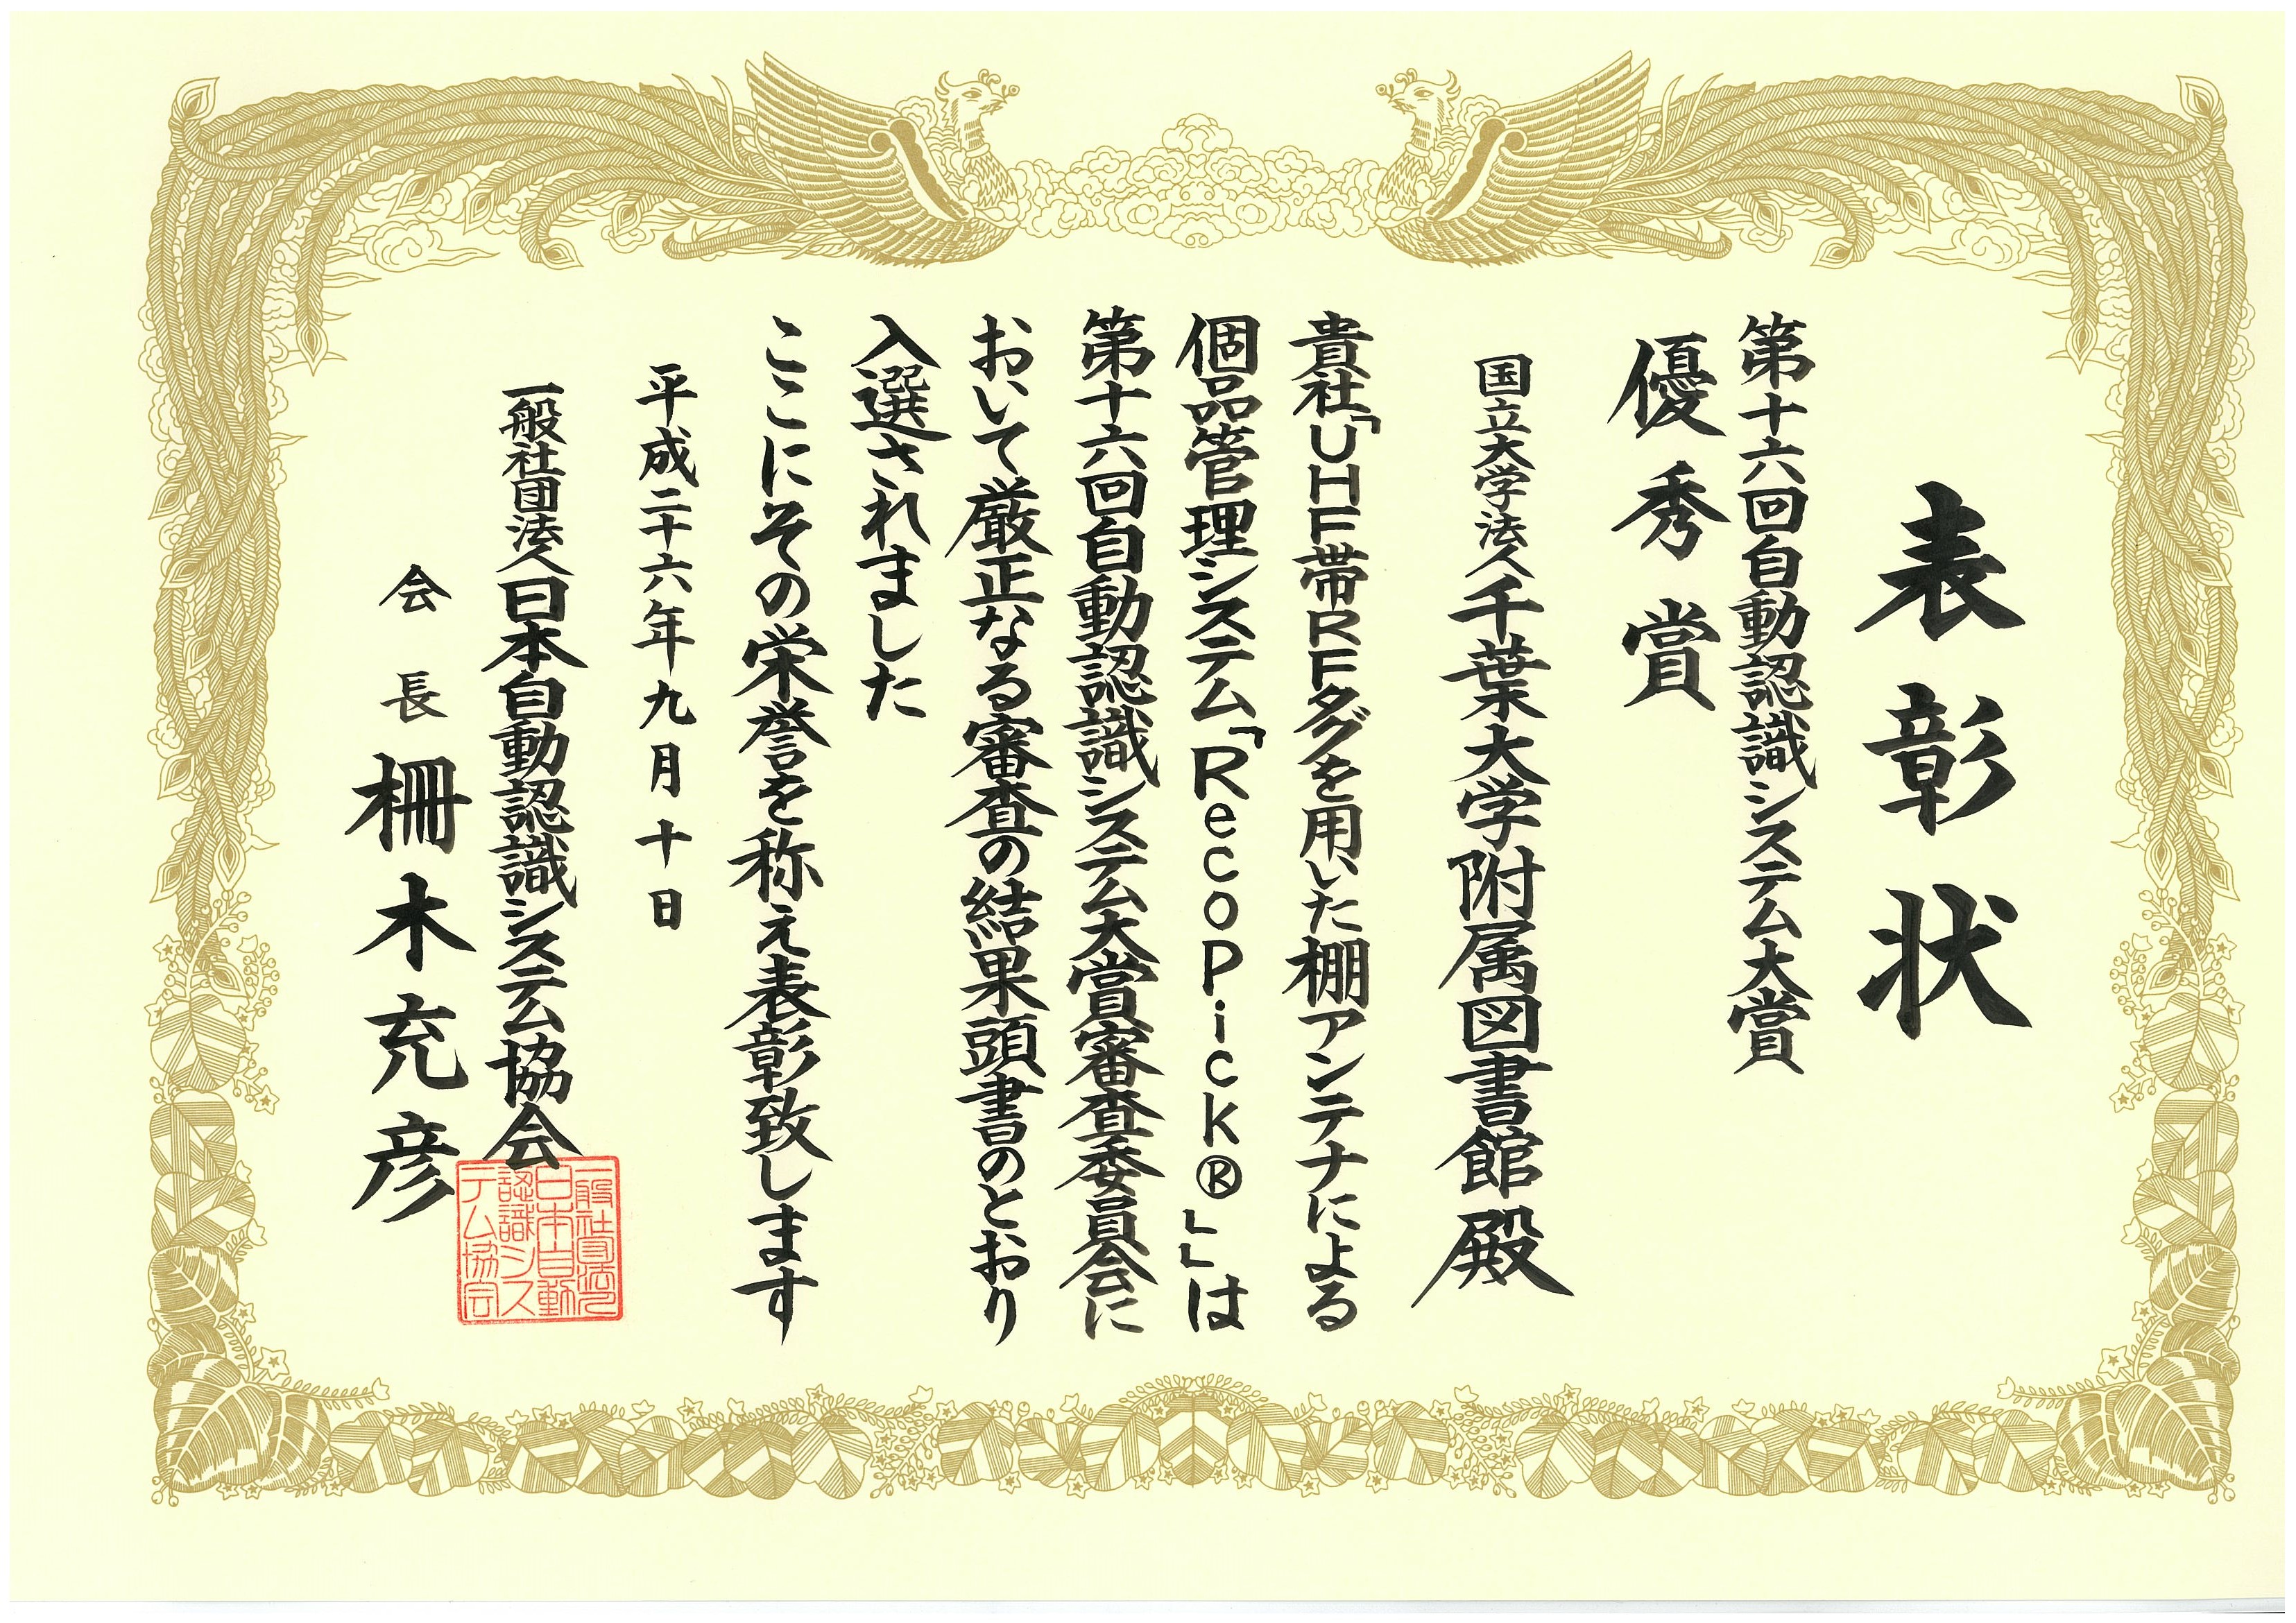 表彰状
第十六回自動認識システム大賞
優秀賞
国立大学法人千葉大学附属図書館殿
貴社「UHF帯RFタグを用いた棚アンテナによる
個品管理システム「RecoPick®」」は
第十六回自動認識システム大賞審査委員会に
おいて厳正なる審査の結果頭書のとおり
入選されました
ここにその栄誉を称え表彰致します
平成二十六年九月十日
一般社団法人日本自動認識システム協会
会長 柵木充彦
一般社団法人
日本自動
認識シス
テム協会